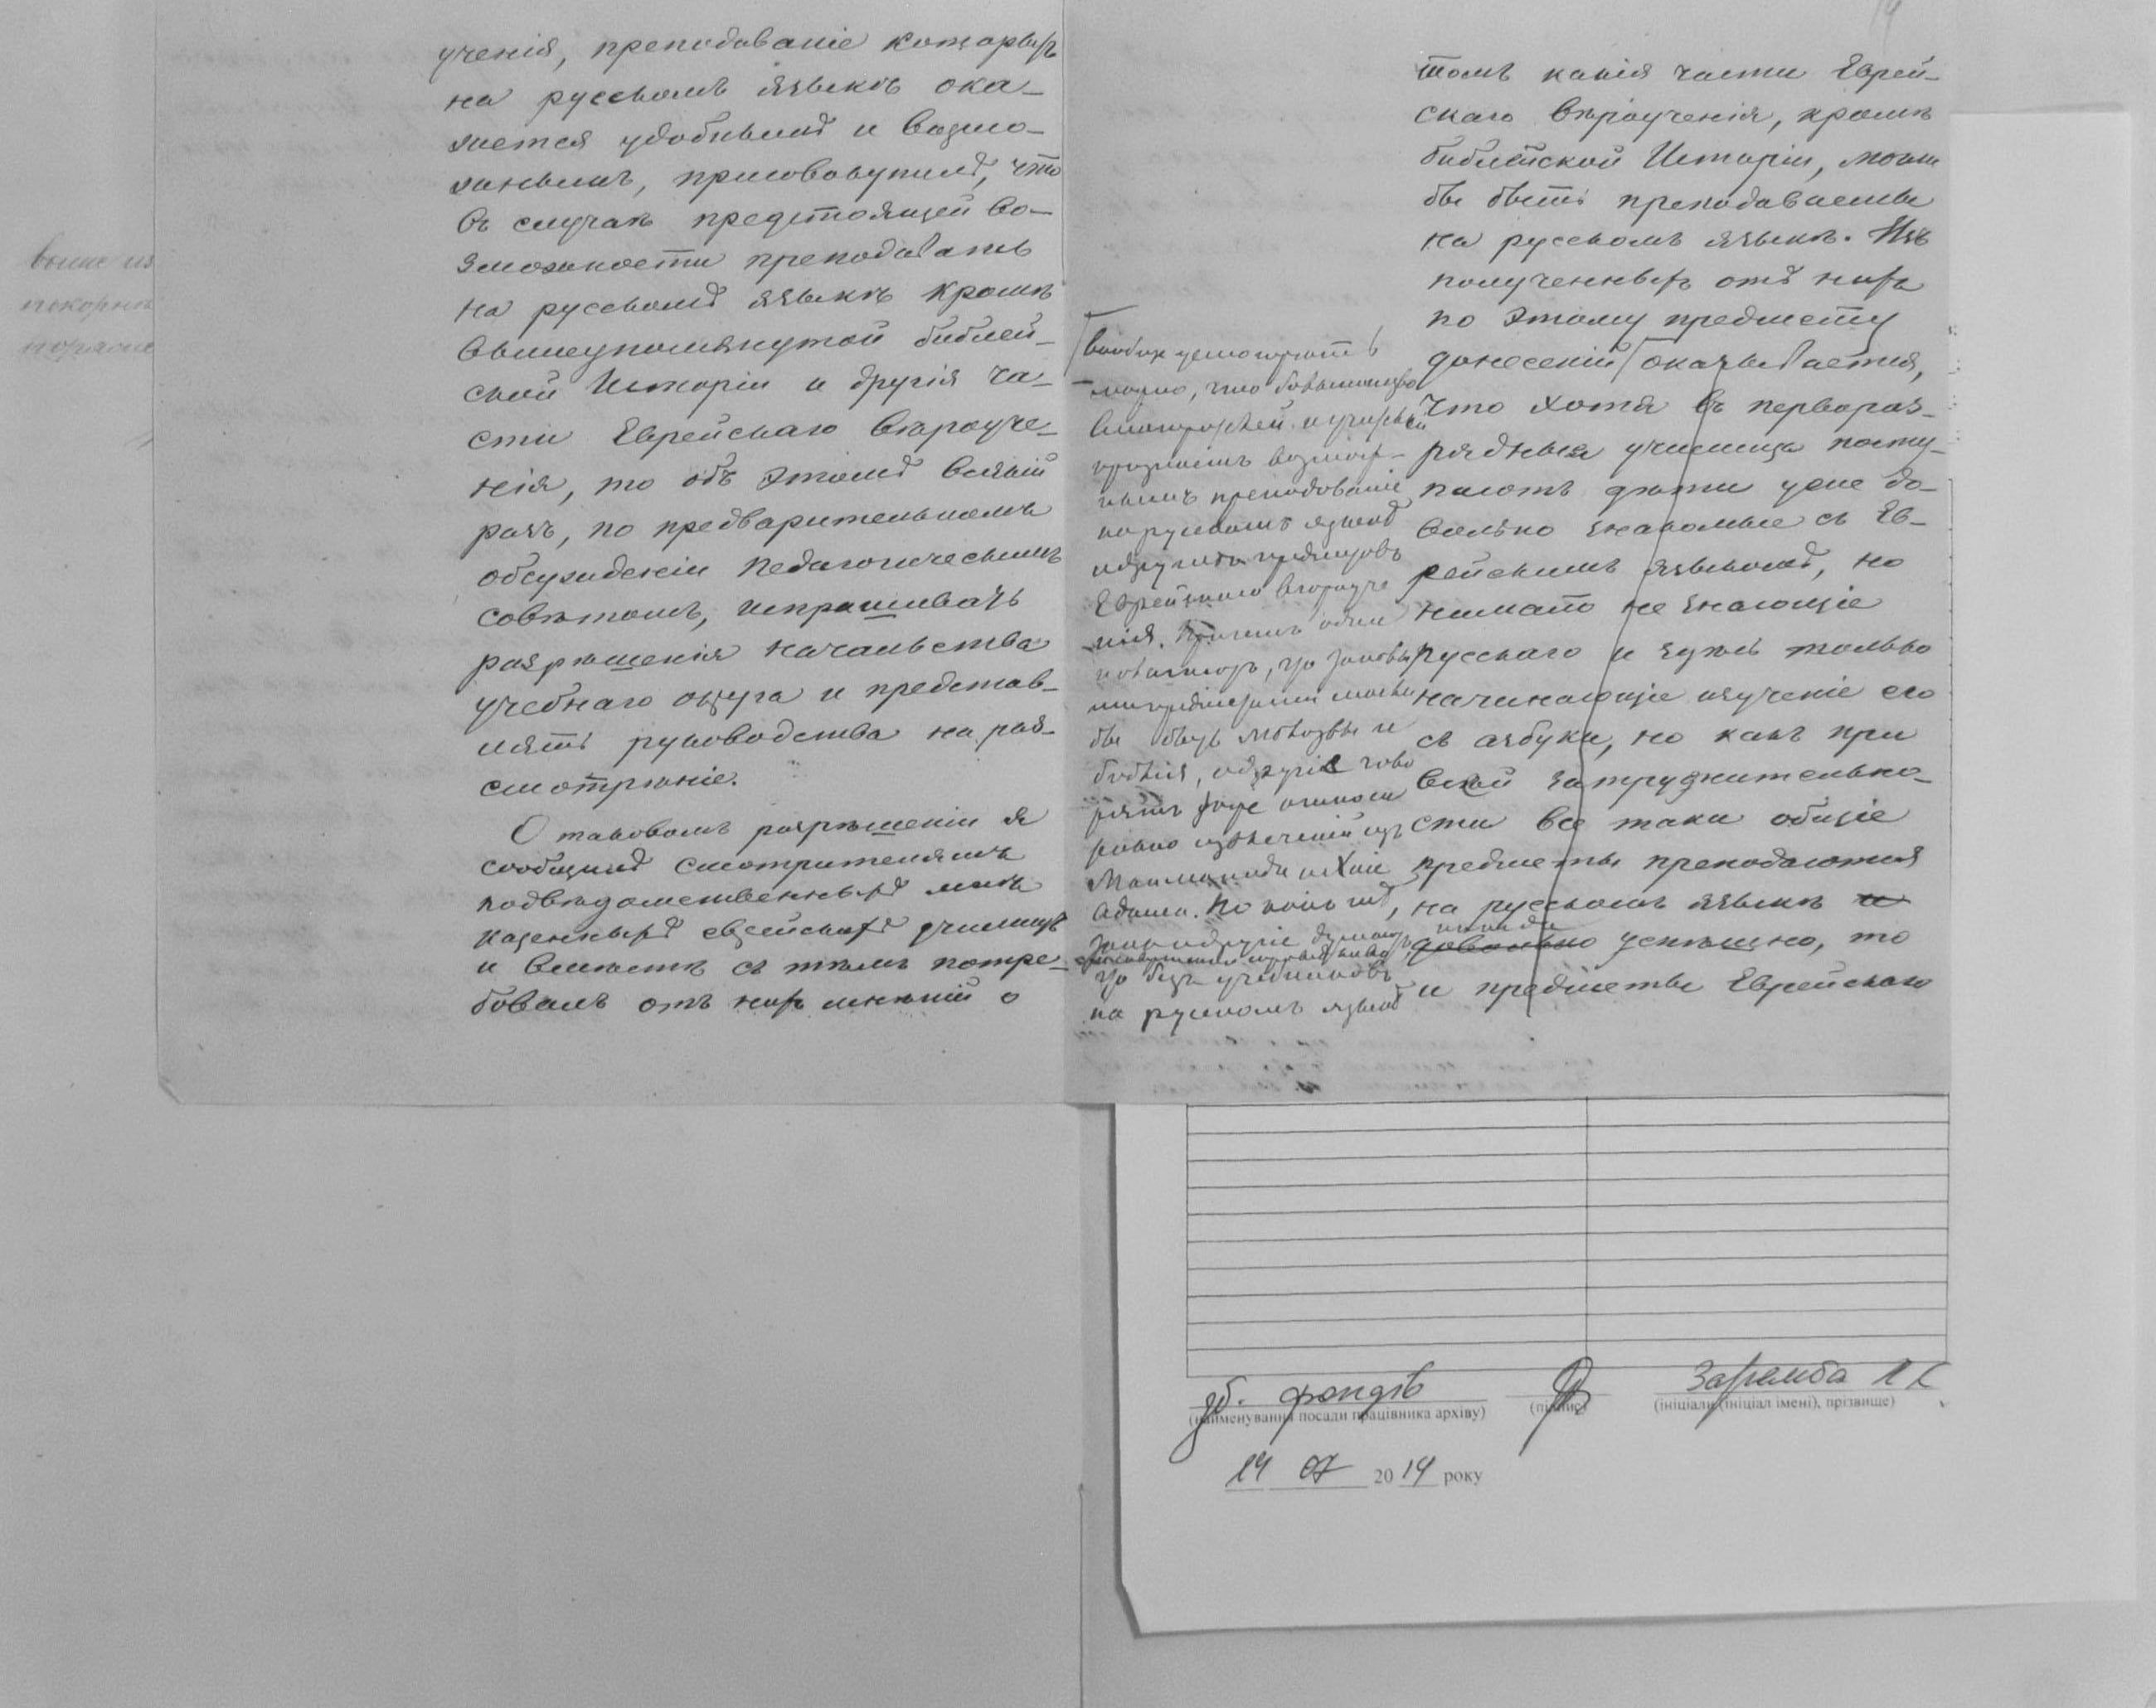 ученія, преподаваніе которыхъ
на русскомъ языкѣ ока-
жется удобнымъ и возмо-
жнымъ, присовокупилъ, что
въ случаѣ предстоящей во-
зможности преподавать
на русскомъ языкѣ кромѣ
вышеупомянутой библей-
ской Исторіи и другія ча-
сти Еврейскаго вѣроуче-
нія, то объ этомъ всякій
разъ, по предварительномъ
обсужденіи Педагогическимъ
совѣтомъ, испрашивать
разрѣшенія начальства
учебнаго округа и представ-
лять руководства на раз-
смотрѣніе.
О таковомъ разрѣшеніи я
сообщилъ смотрителямъ
подвѣдомственныхъ мнѣ
казенныхъ еврейскихъ училищъ
и вмѣстѣ съ тѣмъ потре-
бовалъ отъ нихъ мнѣній о
томъ какія части Еврей-
скаго вѣроученія, кромѣ
библейской Исторіи, могли
бы быть преподаваемы
на русскомъ языкѣ. Изъ
полученныхъ отъ нихъ
по этому предмету
донесеній оказывается,
что хотя въ перворaз-
рядныя училища посту-
паютъ дѣти уже до-
вольно знакомые съ Ев-
рейскимъ языкомъ, но
нимало не знающіе
русскаго и здѣсь только
начинающіе изученіе его
съ азбуки, но какъ при
всей затруднительно-
сти все таки общіе
предметы преподаются
на русскомъ языкѣ и
довольно успѣшно, то
и предметы Еврейскаго
вообще усмотрѣть
можно, что большинство
смотрителей и учителей
признаетъ возмож-
нымъ преподованіе
на русскомъ языкѣ
и другихъ предметовъ
Еврейскаго вѣроуче
нія. Причемъ одни
полагаютъ, что таковы
ми предметами могли
бы быть молитвы и
библія, а другіе гово
рятъ даже относи
тельно извлеченій изъ
Маймонида и Хаіе
Адама.
что безъ учебниковъ
на русскомъ языкѣ
выше из
покорнѣ
зб. фондів
(найменування посади працівника архіву)
(підпис)
Заремба
(ініціали (ініціал імені), прізвище)
14 07 2014 року